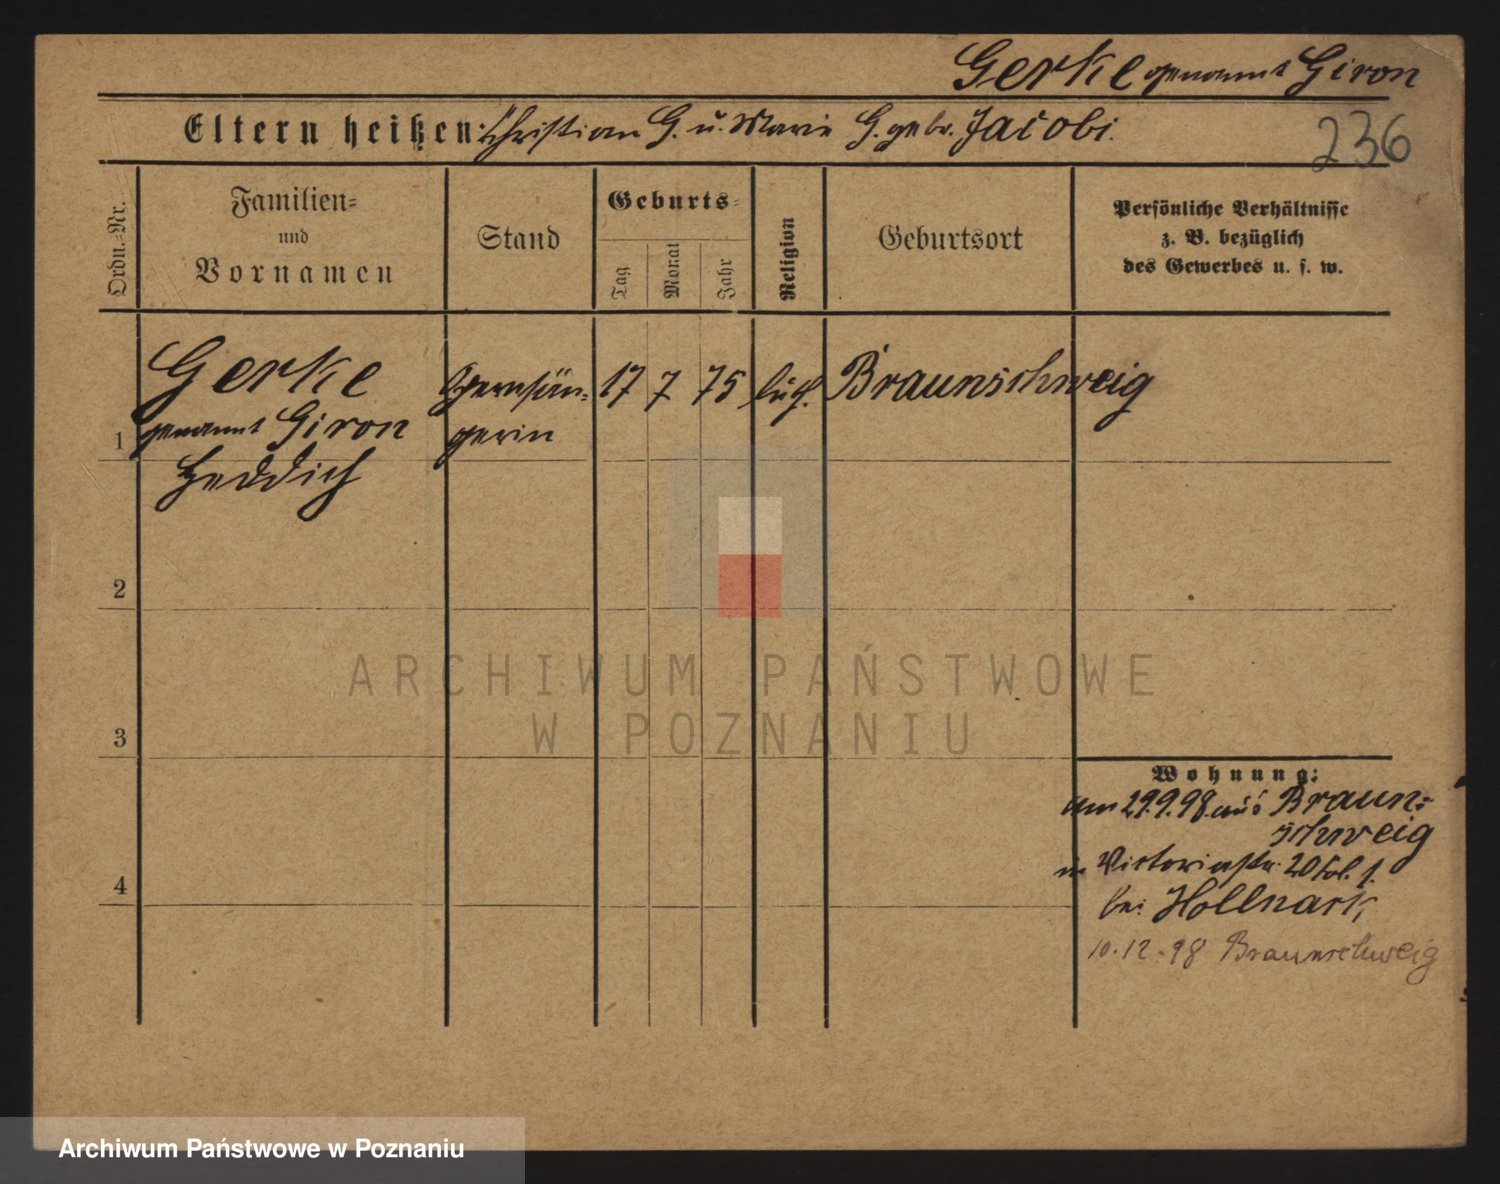 Gerke genannt Giron
Eltern heißen: Christian G. u. Marie G. geb. Jacobi.
236
Ordn.-Nr.
Familien-
und
Vornamen
Stand
Geburts-
Tag
Monat
Jahr
Religion
Geburtsort
Persönliche Verhältnisse
z. B. bezüglich
des Gewerbes u. s. w.
Gerke
genannt Giron
Heddich
Opernsän-
gerin
17 7 75
luth.
Braunschweig
1
2
3
4
Wohnung:
am 29.9.98. aus Braun-
schweig
in Victoriastr. 20 1.
bei Hollnack
10.12.98 Braunschweig
ARCHIWUM PAŃSTWOWE
W POZNANIU
Archiwum Państwowe w Poznaniu